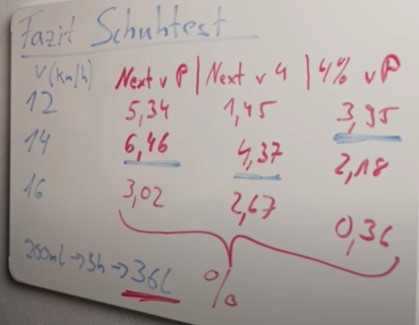 Fazit Schuhtest
v (km/h) Next v P | Next v 4 | 4% v P
12 5,34 1,45 3,95
14 6,46 4,37 2,18
16 3,02 2,67 0,36
200ml → 3h → 36l %